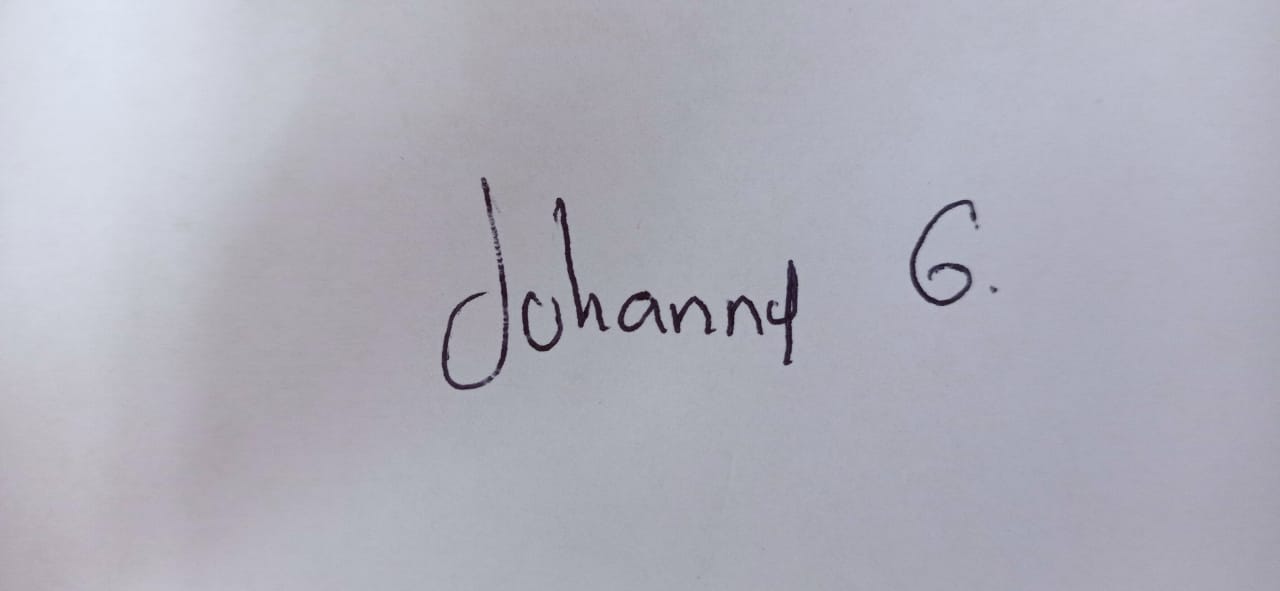 Johanny G.